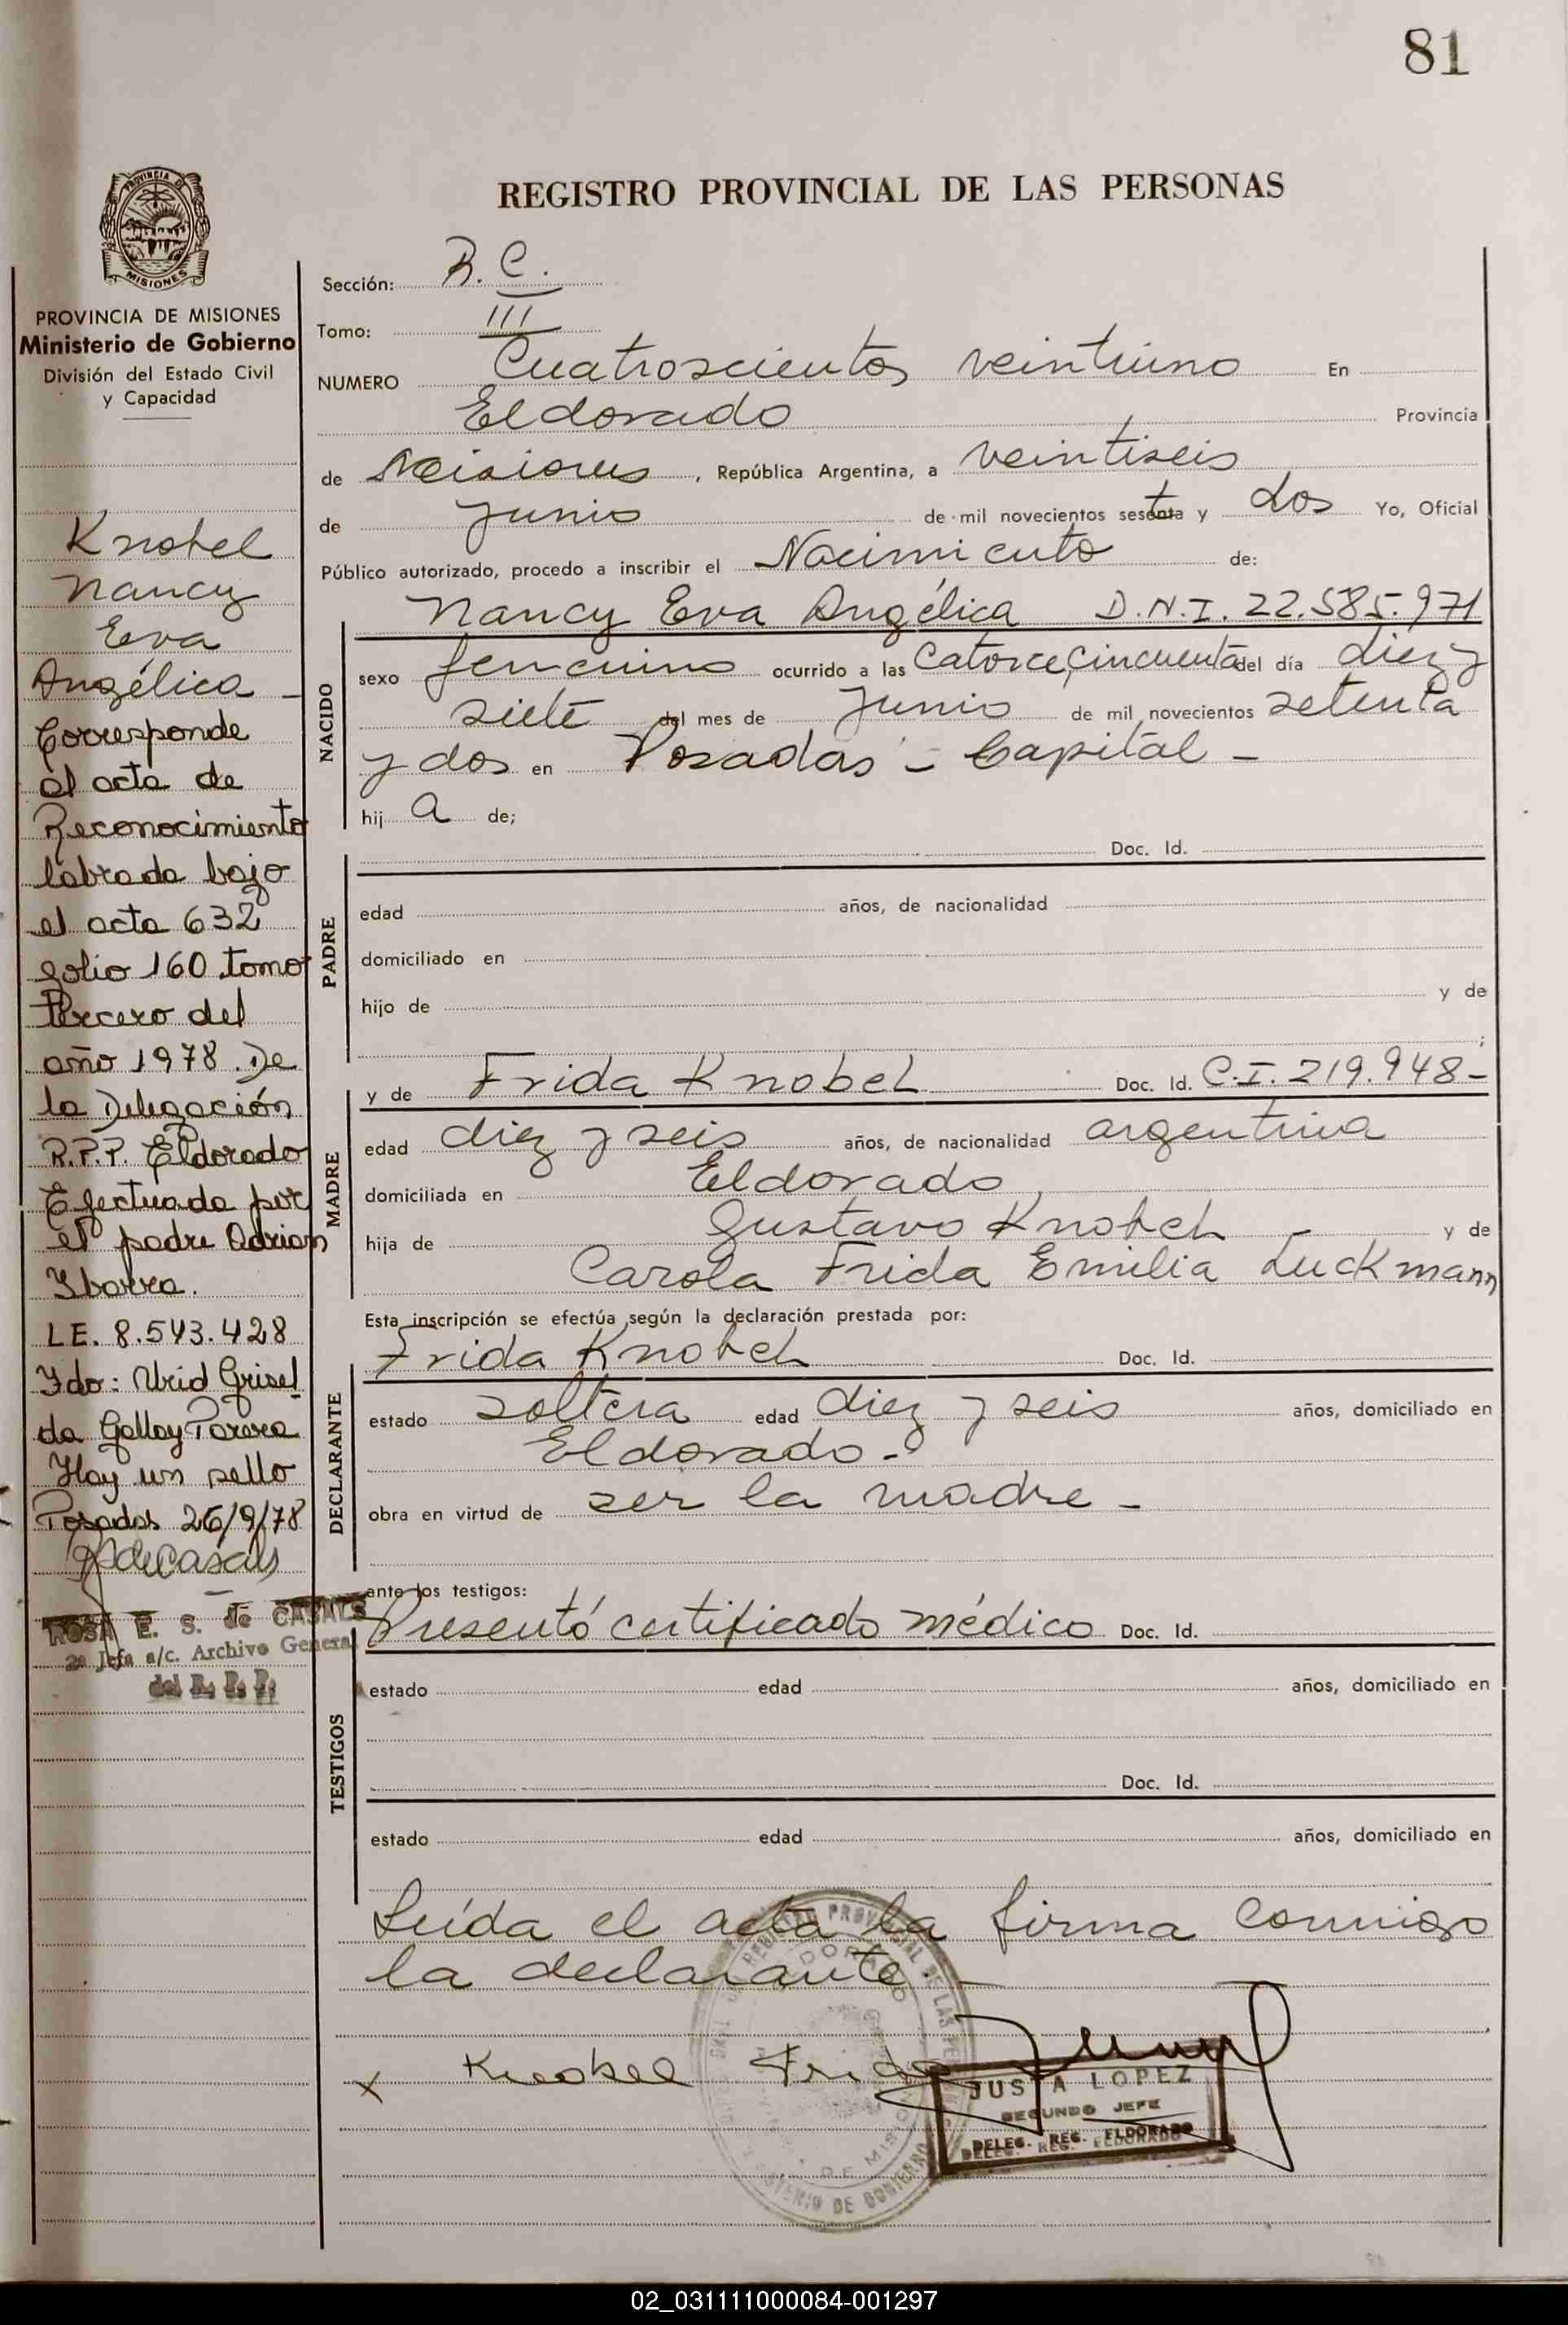 81
REGISTRO PROVINCIAL DE LAS PERSONAS
PROVINCIA DE MISIONES
PROVINCIA DE MISIONES
Ministerio de Gobierno
División del Estado Civil
y Capacidad
Knobel
Nancy
Eva
Angélica -
Corresponde
al acta de
Reconocimiento
labrada bajo
el acta 632
folio 160 tomo
Tercero del
año 1978. De
la Delegación
R.P.P. Eldorado
Efectuada por
el padre Adrian
Ybarra.
LE. 8.543.428
Fdo: Grisel
da
Hay un sello
Posadas 26/9/78
ROSA E. S. de CASALS
2a Jefa a/c. Archivo General
del R. P. P.
Sección: R. C.
Tomo: III
NUMERO Cuatroscientos veintiuno En
Eldorado Provincia
de Misiones, República Argentina, a veintiseis
de Junio de mil novecientos sesenta y dos Yo, Oficial
Público autorizado, procedo a inscribir el Nacimiento de:
NACIDO
Nancy Eva Angélica D.N.I. 22.585.971
sexo femenino ocurrido a las Catorce, Cincuenta del día diez y
siete del mes de Junio de mil novecientos setenta
y dos en Posadas - Capital -
hij a de;
PADRE
Doc. Id.
edad años, de nacionalidad
domiciliado en
hijo de y de
;
MADRE
y de Frida Knobel Doc. Id. C.I. 219.948-
edad diez y seis años, de nacionalidad argentina
domiciliada en Eldorado
hija de Gustavo Knobel - y de
Carola Frida Emilia Luckmann
Esta inscripción se efectúa según la declaración prestada por:
DECLARANTE
Frida Knobel Doc. Id.
estado soltera edad diez y seis años, domiciliado en
Eldorado -
obra en virtud de ser la madre -
ante los testigos:
TESTIGOS
Presentó certificado médico Doc. Id.
estado edad años, domiciliado en
Doc. Id.
estado edad años, domiciliado en
Leída el acta la firma conmigo
la declarante. -
x Knobel Frida
JUSTA LOPEZ
SEGUNDO JEFE
DELEG. REG. ELDORADO
02_031111000084-001297